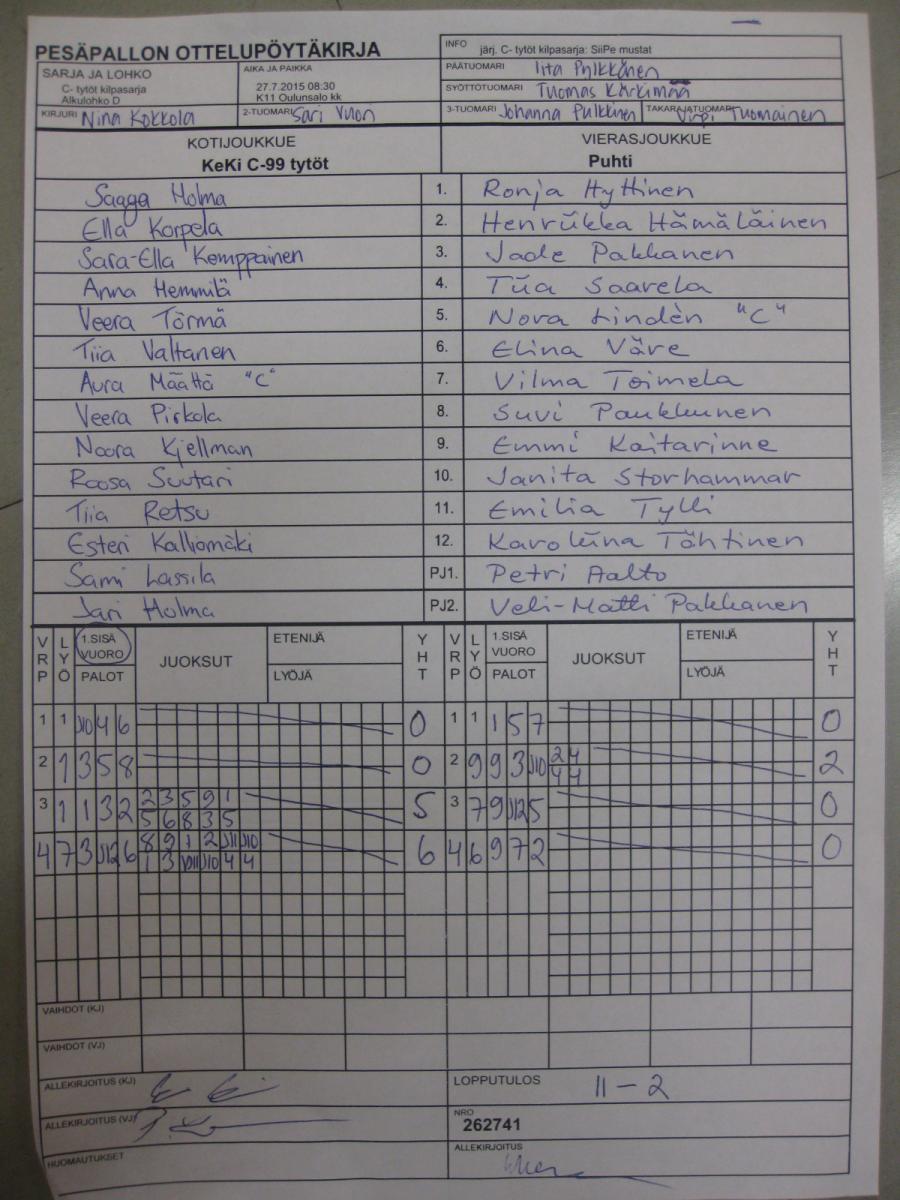 PESÄPALLON OTTELUPÖYTÄKIRJA
INFO järj. C- tytöt kilpasarja: SiiPe mustat
SARJA JA LOHKO
C- tytöt kilpasarja
Alkulohko D
AIKA JA PAIKKA
27.7.2015 08:30
K11 Oulunsalo kk
PÄÄTUOMARI Iita Pulkkänen
SYÖTTÖTUOMARI Tuomas Kärkimaa
KIRJURI Nina Kokkola
2-TUOMARI Sari Vuon
3-TUOMARI Johanna Pulkkinen
TAKARAJATUOMARI Virpi Tuomainen
KOTIJOUKKUE VIERASJOUKKUE
KeKi C-99 tytöt Puhti
Saaga Holma 1. Ronja Hyttinen
Ella Korpela 2. Henriikka Hämäläinen
Sara-Ella Kemppainen 3. Jade Pakkanen
Anna Hemmilä 4. Tiia Saarela
Veera Törmä 5. Nova Lindèn "C"
Tiia Valtanen 6. Elina Väre
Aura Määttä "C" 7. Vilma Toimela
Veera Pirkola 8. Suvi Paukkunen
Noora Kjellman 9. Emmi Kaitarinne
Roosa Suutari 10. Janita Storhammar
Tiia Retsu 11. Emilia Tylli
Esteri Kalliomäki 12. Karoliina Tähtinen
Sami Lassila PJ1. Petri Aalto
Jari Holma PJ2. Veli-Matti Pakkanen
VRP LYÖ 1.SISÄ VUORO PALOT JUOKSUT ETENIJÄ LYÖJÄ YHT VRP LYÖ 1.SISÄ VUORO PALOT JUOKSUT ETENIJÄ LYÖJÄ YHT
1 1 J10 4 6 0 1 1 1 5 7 0
2 1 3 5 8 0 2 9 9 3 J10 2 4 2
4 4
3 1 1 3 2 2 3 5 9 1 5 3 7 9 J12 5 0
5 6 8 3 5
4 7 3 J12 6 8 9 1 2 J11 J10 6 4 6 9 7 2 0
1 3 J11 J10 4 4
VAIHDOT (KJ)
VAIHDOT (VJ)
ALLEKIRJOITUS (KJ) LOPPUTULOS 11 - 2
ALLEKIRJOITUS (VJ) NRO
262741
HUOMAUTUKSET ALLEKIRJOITUS